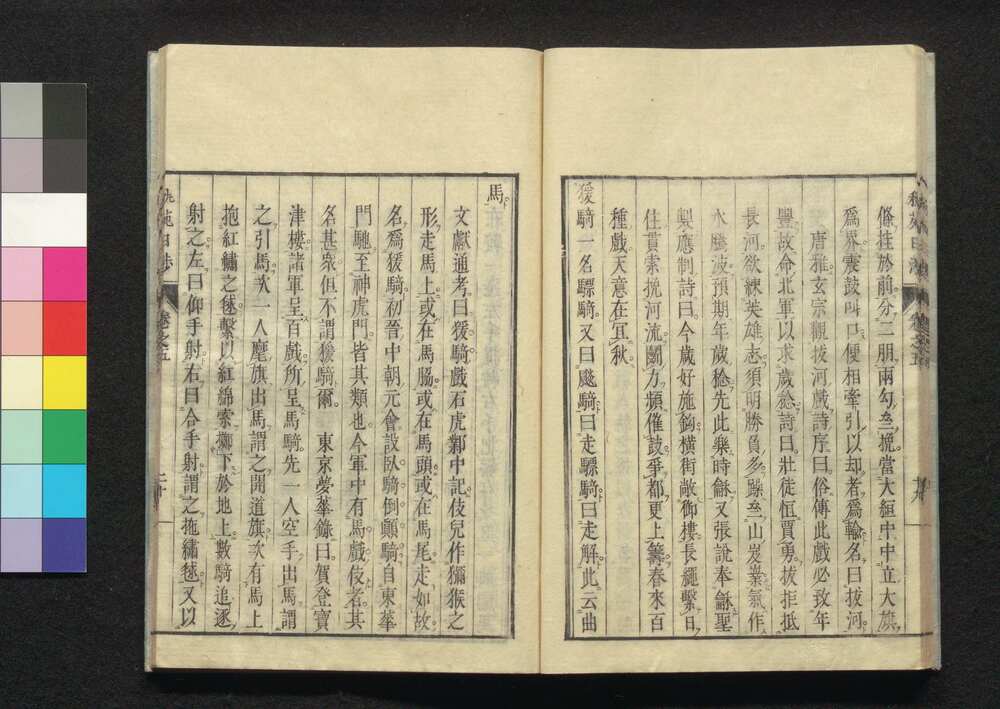 條挂於前分二朋兩勾齊挽當大絙中立大旗
爲界震鼓叫口便相牽引以却者爲輸名曰拔河
唐雅玄宗觀拔河戲詩序曰俗傳此戲必致年
豐故命北軍以求歲稔詩曰壯徒恒賈勇拔拒抵
長河欲練英雄志須明勝負多躁齊山岌嶪氣作
水騰波預期年歲稔先此樂時龢又張説奉龢聖
製應制詩曰今歲好施鈎横街敞御樓長繩繫日
住貫索挽河流鬭力頻催鼓爭都更上籌春來百
種戲天意在宜秋
猨騎一名驃騎又曰飈騎曰走驃騎曰走解此云曲
馬
文獻通考曰猨騎戲石虎鄴中記伎兒作獼猴之
形走馬上或在馬脇或在馬頭或在馬尾走如故
名爲猨騎初晉中朝元會設臥騎倒顛騎自東華
門馳至神虎門皆其類也今軍中有馬戲伎者其
名甚衆但不謂猨騎爾 東京夢華錄曰駕登寶
津樓諸軍呈百戲所呈馬騎先一人空手出馬謂
之引馬次一人麾旗出馬謂之開道旗次有馬上
抱紅繡之毬繫以紅綿索擲下於地上數騎追逐
射之左曰仰手射右曰合手射謂之拖繡毬又以
秇苑日涉 卷之五 二十